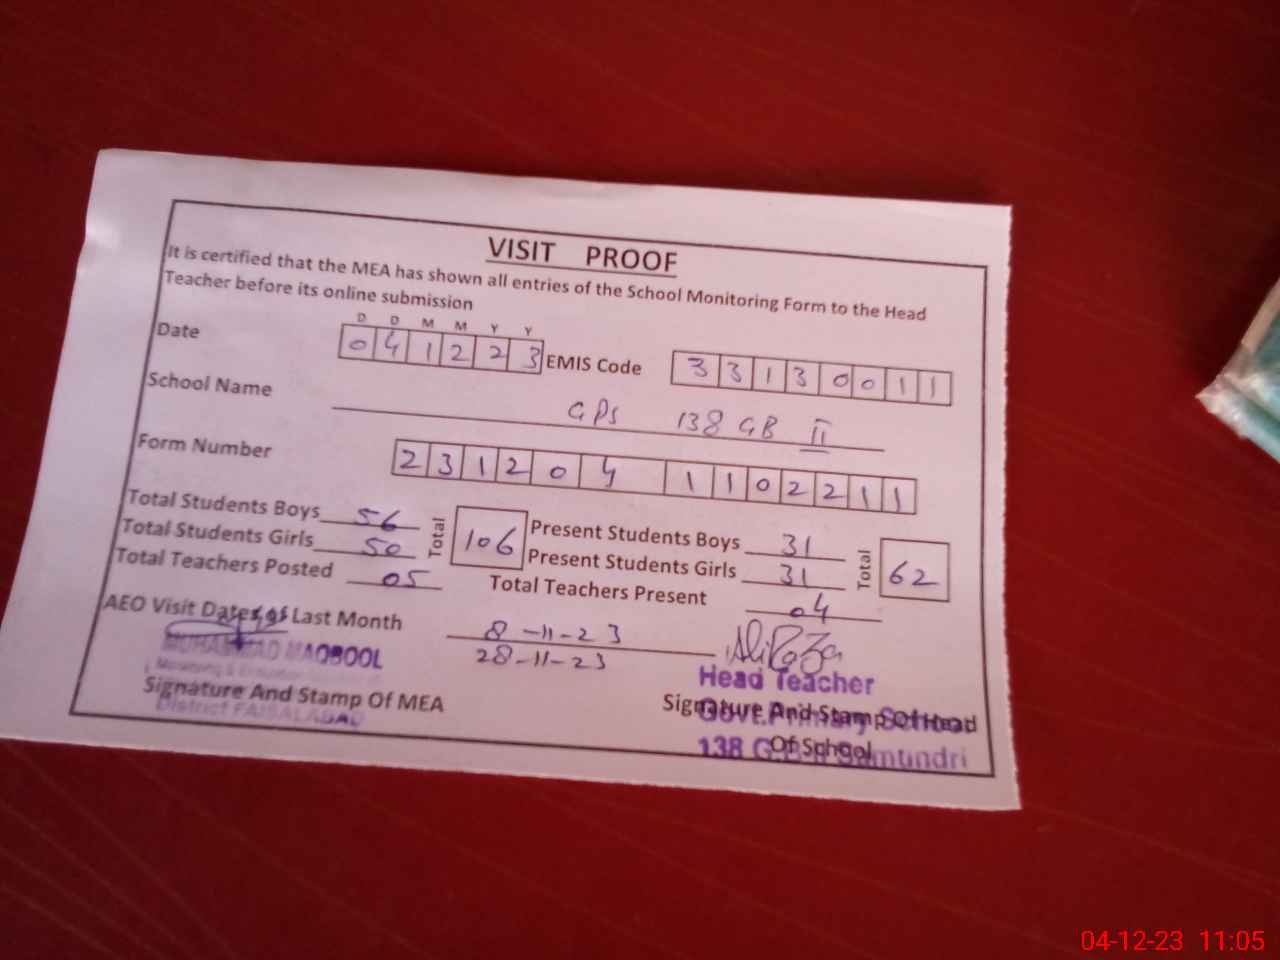 VISIT PROOF
It is certified that the MEA has shown all entries of the School Monitoring Form to the Head
Teacher before its online submission
D D M M Y Y
Date 0 4 1 2 2 3 EMIS Code 3 3 1 3 0 0 1 1
School Name GPS 138 GB II
Form Number 2 3 1 2 0 4 1 1 0 2 2 1 1
Total Students Boys 56 Total 106 Present Students Boys 31 Total 62
Total Students Girls 50 Present Students Girls 31
Total Teachers Posted 05 Total Teachers Present 04
AEO Visit Dates of Last Month 8-11-23
28-11-23
MUHAMMAD MAQBOOL
Signature And Stamp Of MEA
District FAISALABAD
Ali Raza
Head Teacher
Signature And Stamp Of Head
Govt. Primary School
Of School
138 G.B II Samundri
04-12-23 11:05